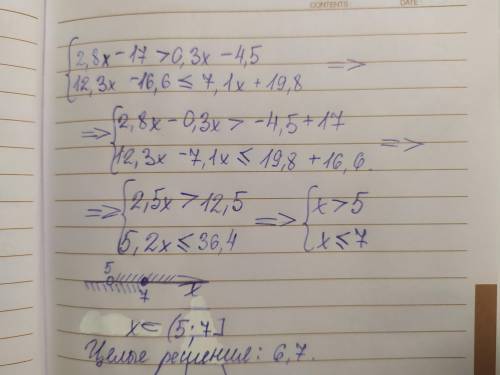 CONTENTS DATE
{2,8x-17>0,3x-4,5
{12,3x-16,6≤7,1x+19,8 =>
=> {2,8x-0,3x>-4,5+17
{12,3x-7,1x≤19,8+16,6. =>
=> {2,5x>12,5 => {x>5
{5,2x≤36,4 {x≤7
5
7 x
x∈(5;7]
Целые решения: 6,7.